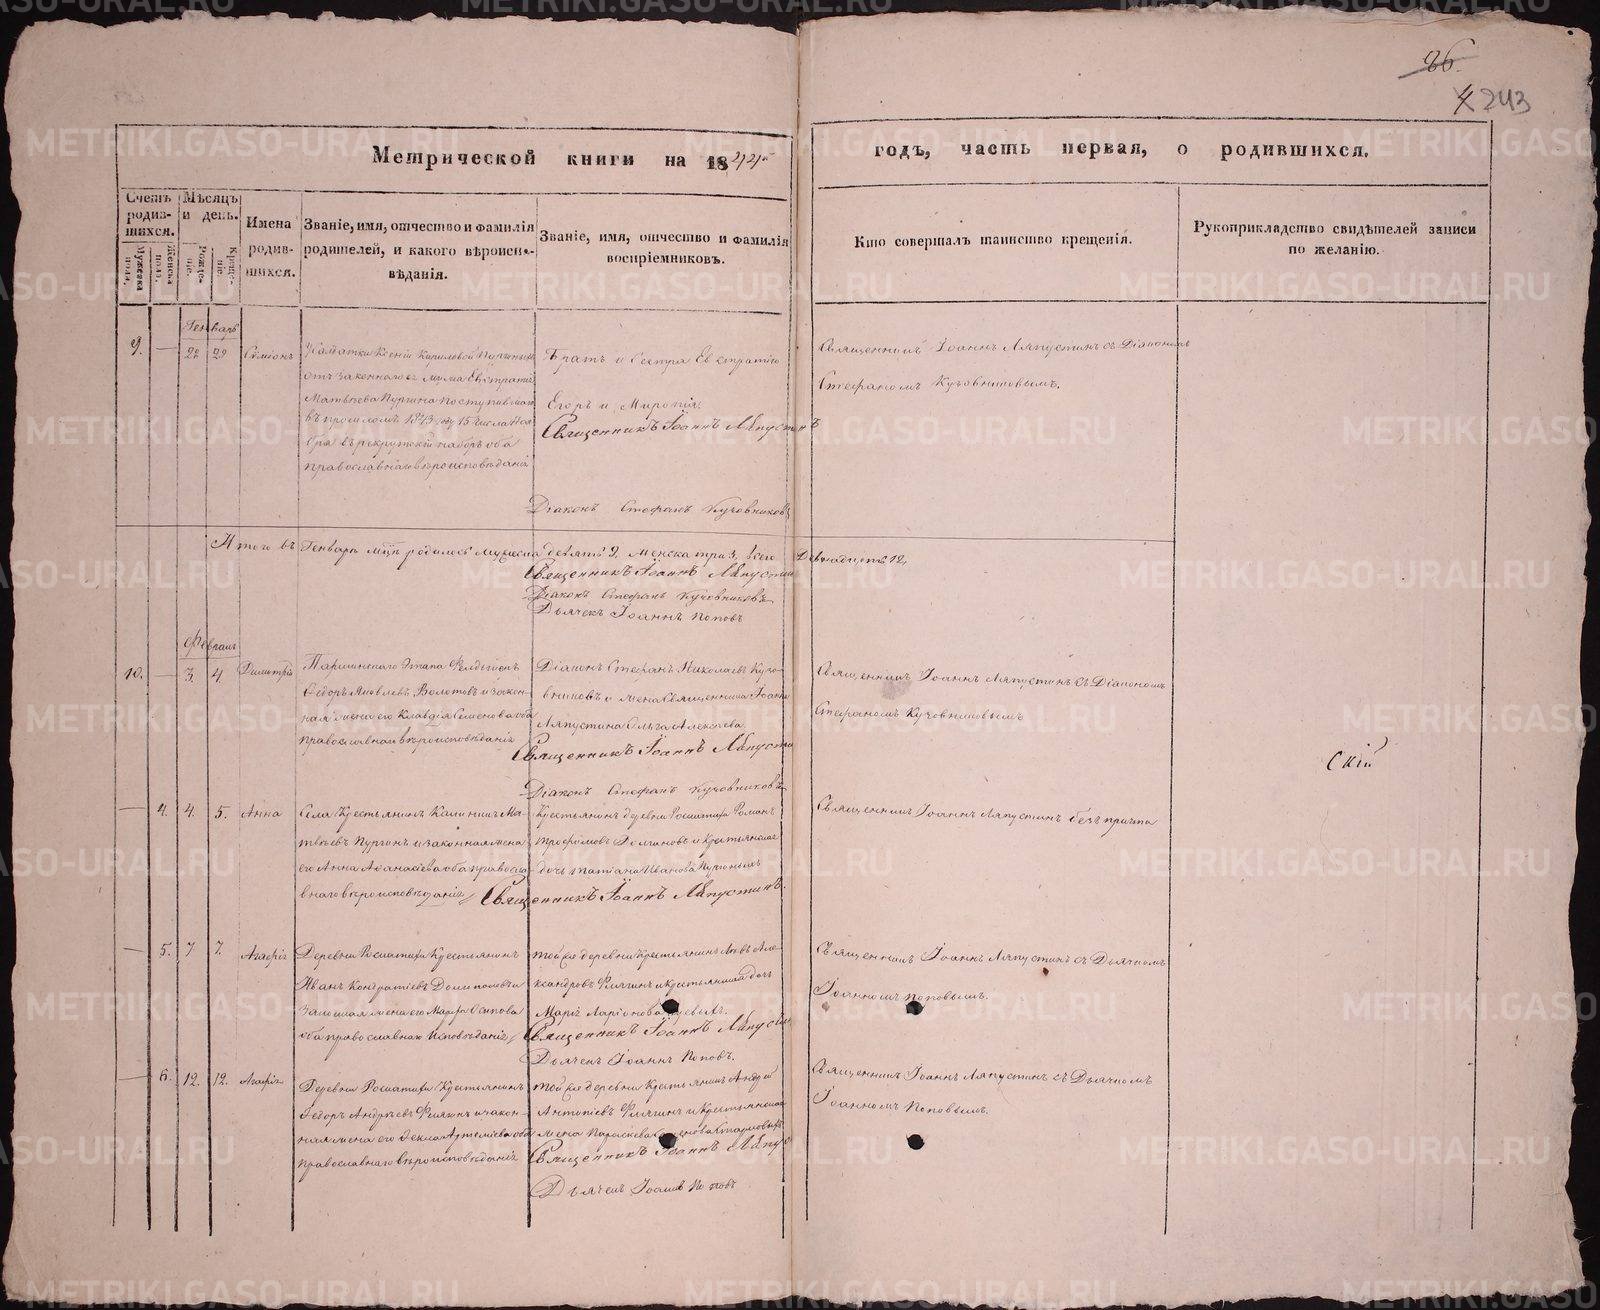 86.
4 243
Метрической книги на 1844й
годъ, часть первая, о родившихся.
Счетъ родив-шихся.
Мужеска пола.
Женска пола.
Мѣсяцъ и день.
Рожде-ніе.
Креще-ніе.
Имена родив-шихся.
Званіе, имя, отчество и фамилія
родителей, и какого вѣроиспо-
вѣданія.
Званіе, имя, отчество и фамилія
воспріемниковъ.
Кто совершалъ таинство крещенія.
Рукоприкладство свидѣтелей записи
по желанію.
Генварь
9. — 22 29 Симіонъ
Ксеніи Кириловой Пургиныхъ
отъ законнаго ея мужа Евстратія
Матвѣева Пургина поступившаго
въ прошломъ 1843 году 15 числа Ноя
бря въ рекрутскій наборъ оба
православнаго вѣроисповѣданія
Братъ и Сестра Евстратіго
Егоръ и Миропія
Священникъ Іоаннъ Ляпустинъ
Діаконъ Стефанъ Кучовниковъ
Священникъ Іоаннъ Ляпустинъ съ Діакономъ
Стефаномъ Кучовниковымъ.
Итого въ Генварѣ мцѣ родилось мужеска девять 9. женска три 3. всего Двѣнадцать 12.
Священникъ Іоаннъ Ляпустинъ
Діаконъ Стефанъ Кучовниковъ
Дьячекъ Іоаннъ Поповъ
Февраль
10. — 3. 4. Димитрій
этапа Фелдшеръ
Ѳедоръ Яковлевъ Волотовъ и закон-
ная жена его Клавдія Семенова оба
православнаго вѣроисповѣданія
Діаконъ Стефанъ Николаевъ Кучо-
вниковъ и жена Священника Іоанна
Ляпустина Ольга Алексѣева.
Священникъ Іоаннъ Ляпустинъ
Діаконъ Стефанъ Кучовниковъ
Священникъ Іоаннъ Ляпустинъ съ Діакономъ
Стефаномъ Кучовниковымъ
Скій
— 4. 4. 5. Анна
Села Крестьянинъ Калинникъ Ма-
твѣевъ Пургинъ и законная жена
его Анна Аѳанасіева оба правосла
внаго вѣроисповѣданія
Крестьянинъ деревни Роман
Трофимовъ Долгановъ и крестьянская
дочь Татіана Иванова Пургиныхъ
Священникъ Іоаннъ Ляпустинъ.
Священникъ Іоаннъ Ляпустинъ безъ причта
— 5. 7 7. Агафія
Деревни Крестьянинъ
Иванъ Кондратіевъ
законная жена его Марѳа Осипова
оба православнаго исповѣданія
той же деревни крестьянинъ Левъ Але-
ксандровъ и крестьянская дочь
Марія Ларіонова
Священникъ Іоаннъ Ляпустинъ
Дьячекъ Іоаннъ Поповъ.
Священникъ Іоаннъ Ляпустинъ съ Дьячкомъ
Іоанномъ Поповымъ.
— 6. 12. 12. Агафія
Деревни Крестьянинъ
Ѳедоръ Андреевъ и закон-
ная жена его Ѳекла Артемиева оба
православнаго вѣроисповѣданія
той же деревни Крестьянинъ Андрей
Антоніевъ и Крестьянская
жена Параскева
Священникъ Іоаннъ Ляпус
Дьячекъ Іоаннъ Поповъ
Священникъ Іоаннъ Ляпустинъ съ Дьячкомъ
Іоанномъ Поповымъ.
METRIKI.GASO-URAL.RU